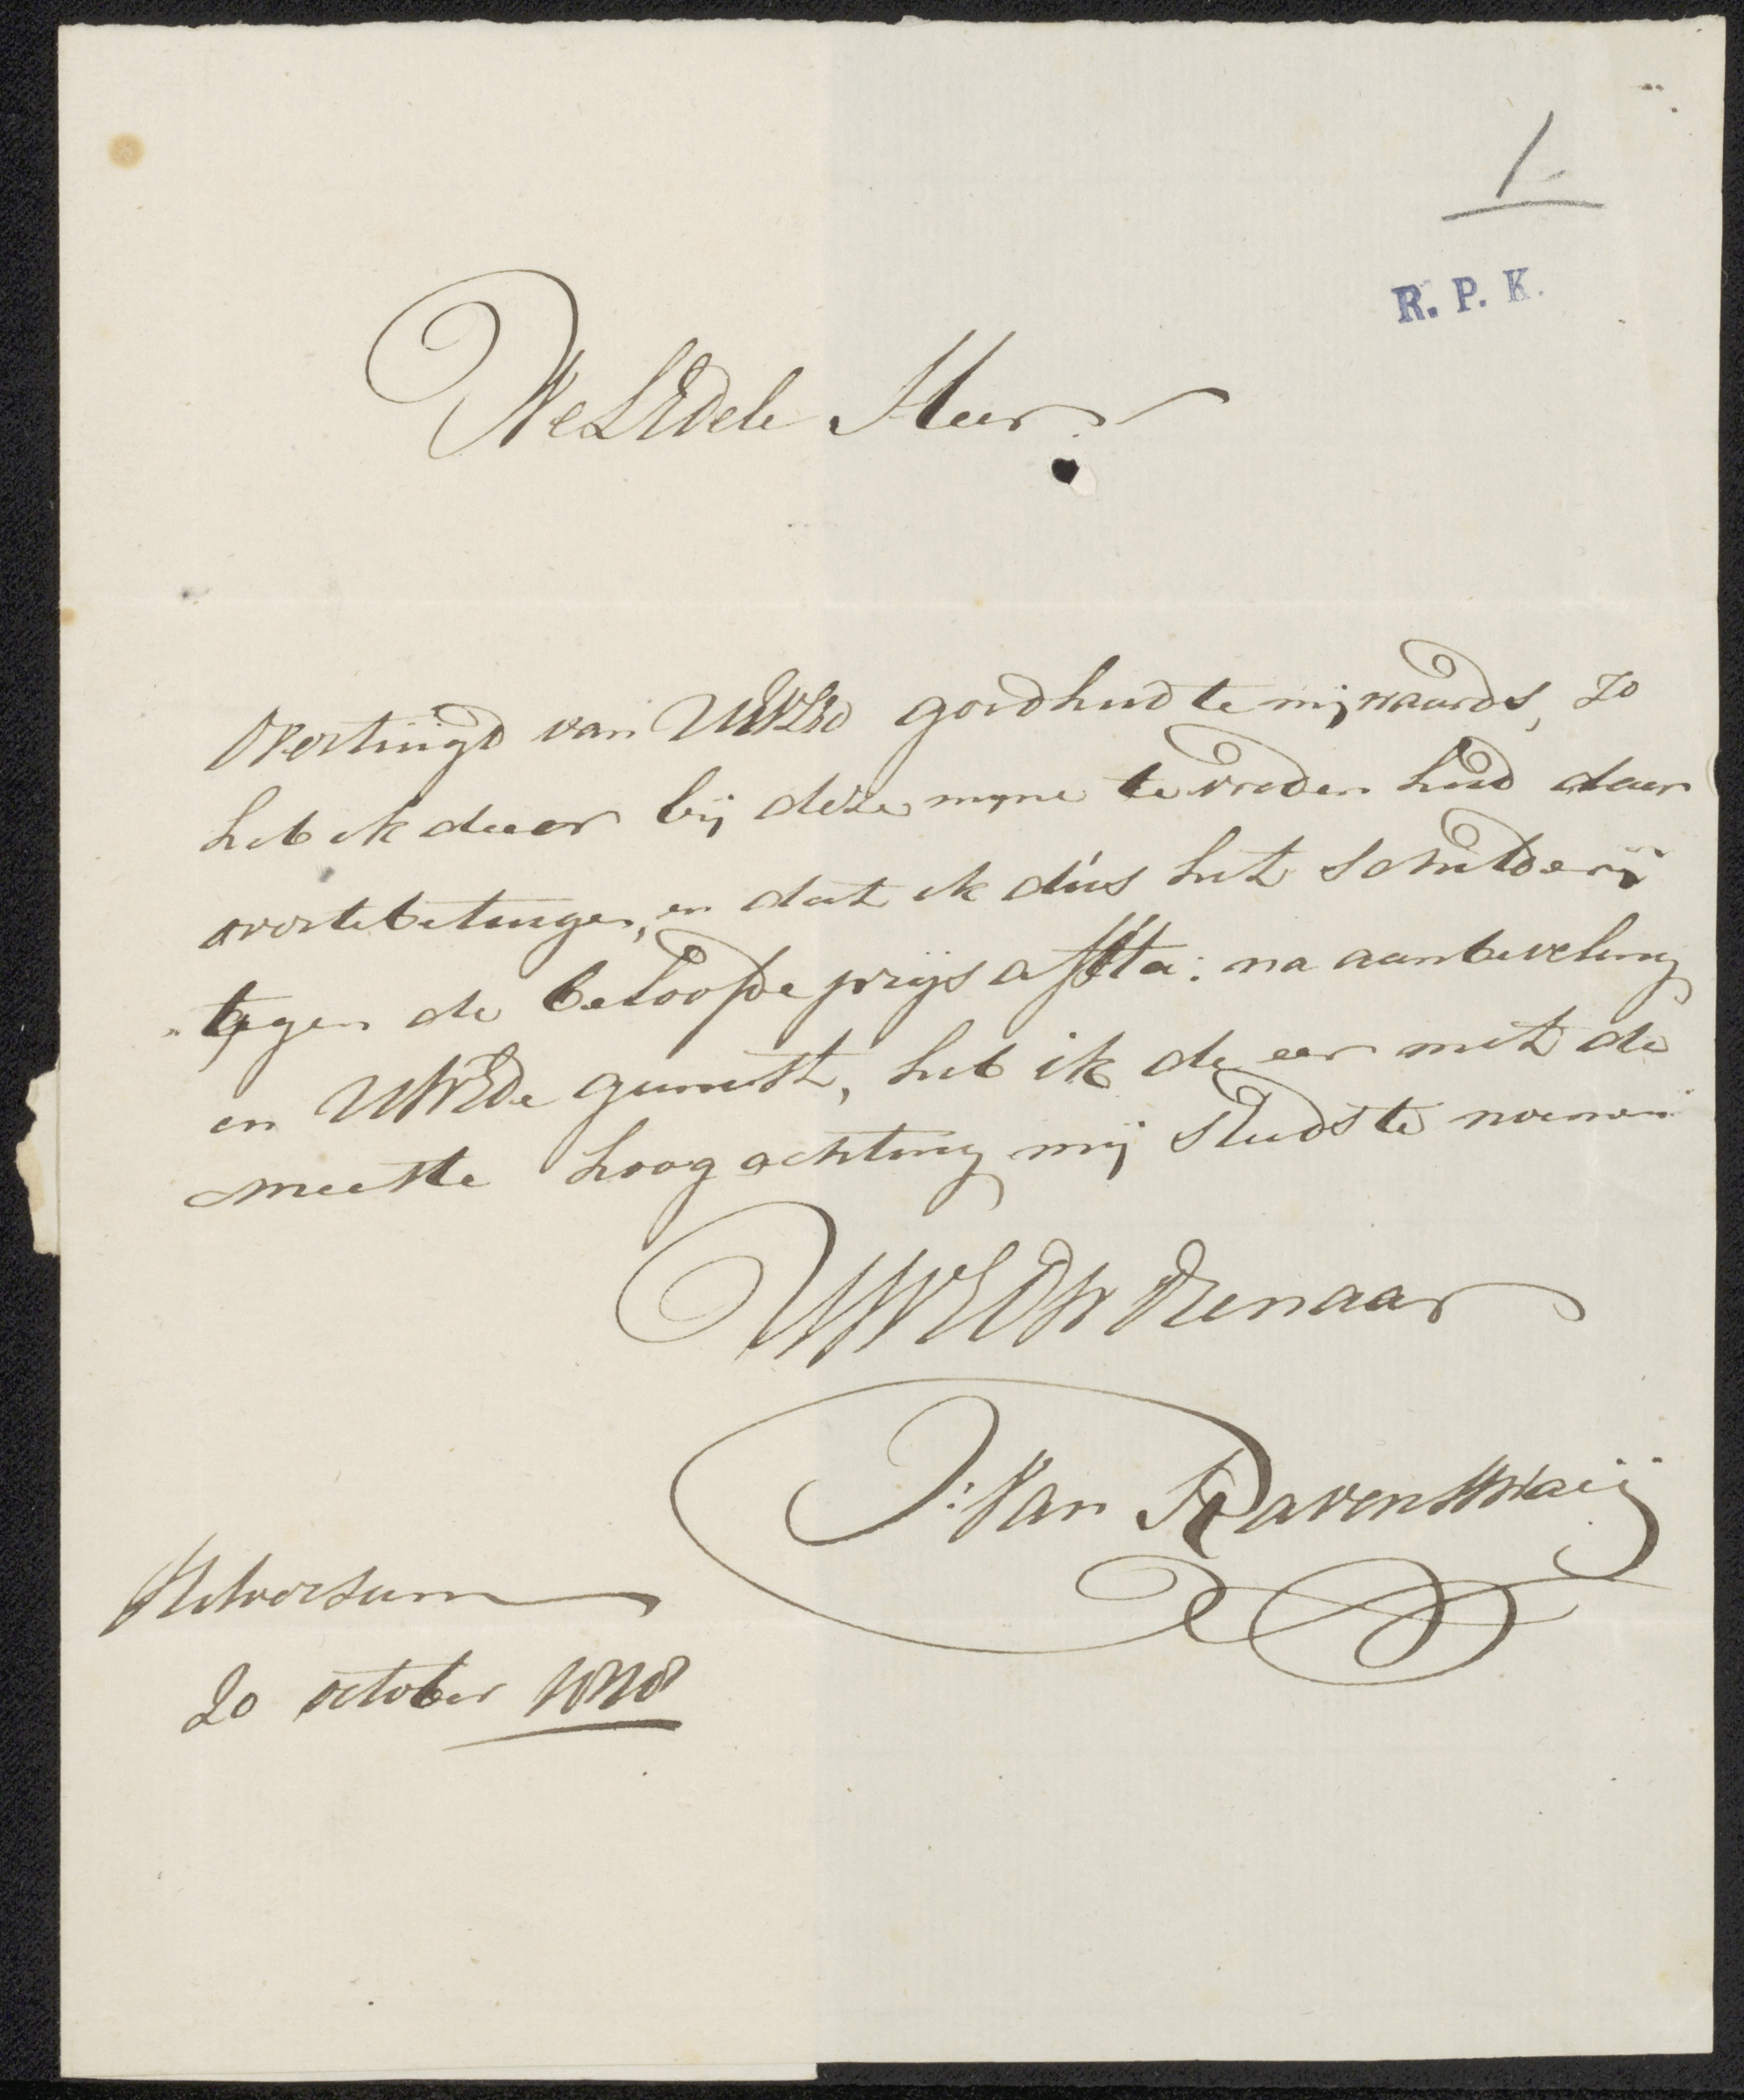 1.
R. P. K.
WelEdele Heer
Overtuigd van UWEd goedheid te mijwaards, zo
heb ik de eer bij deze myne te vreden heid daar
overtebetuigen, en dat ik dus het schilderij
tegen de beloofde prijs afsta: na aanbeveling
en UWEde gunst, heb ik de eer met de
meeste hoogachting mij steeds te noemen
UWEDW Dienaar
J: Van Ravenswaaij
Hilversum
20 october